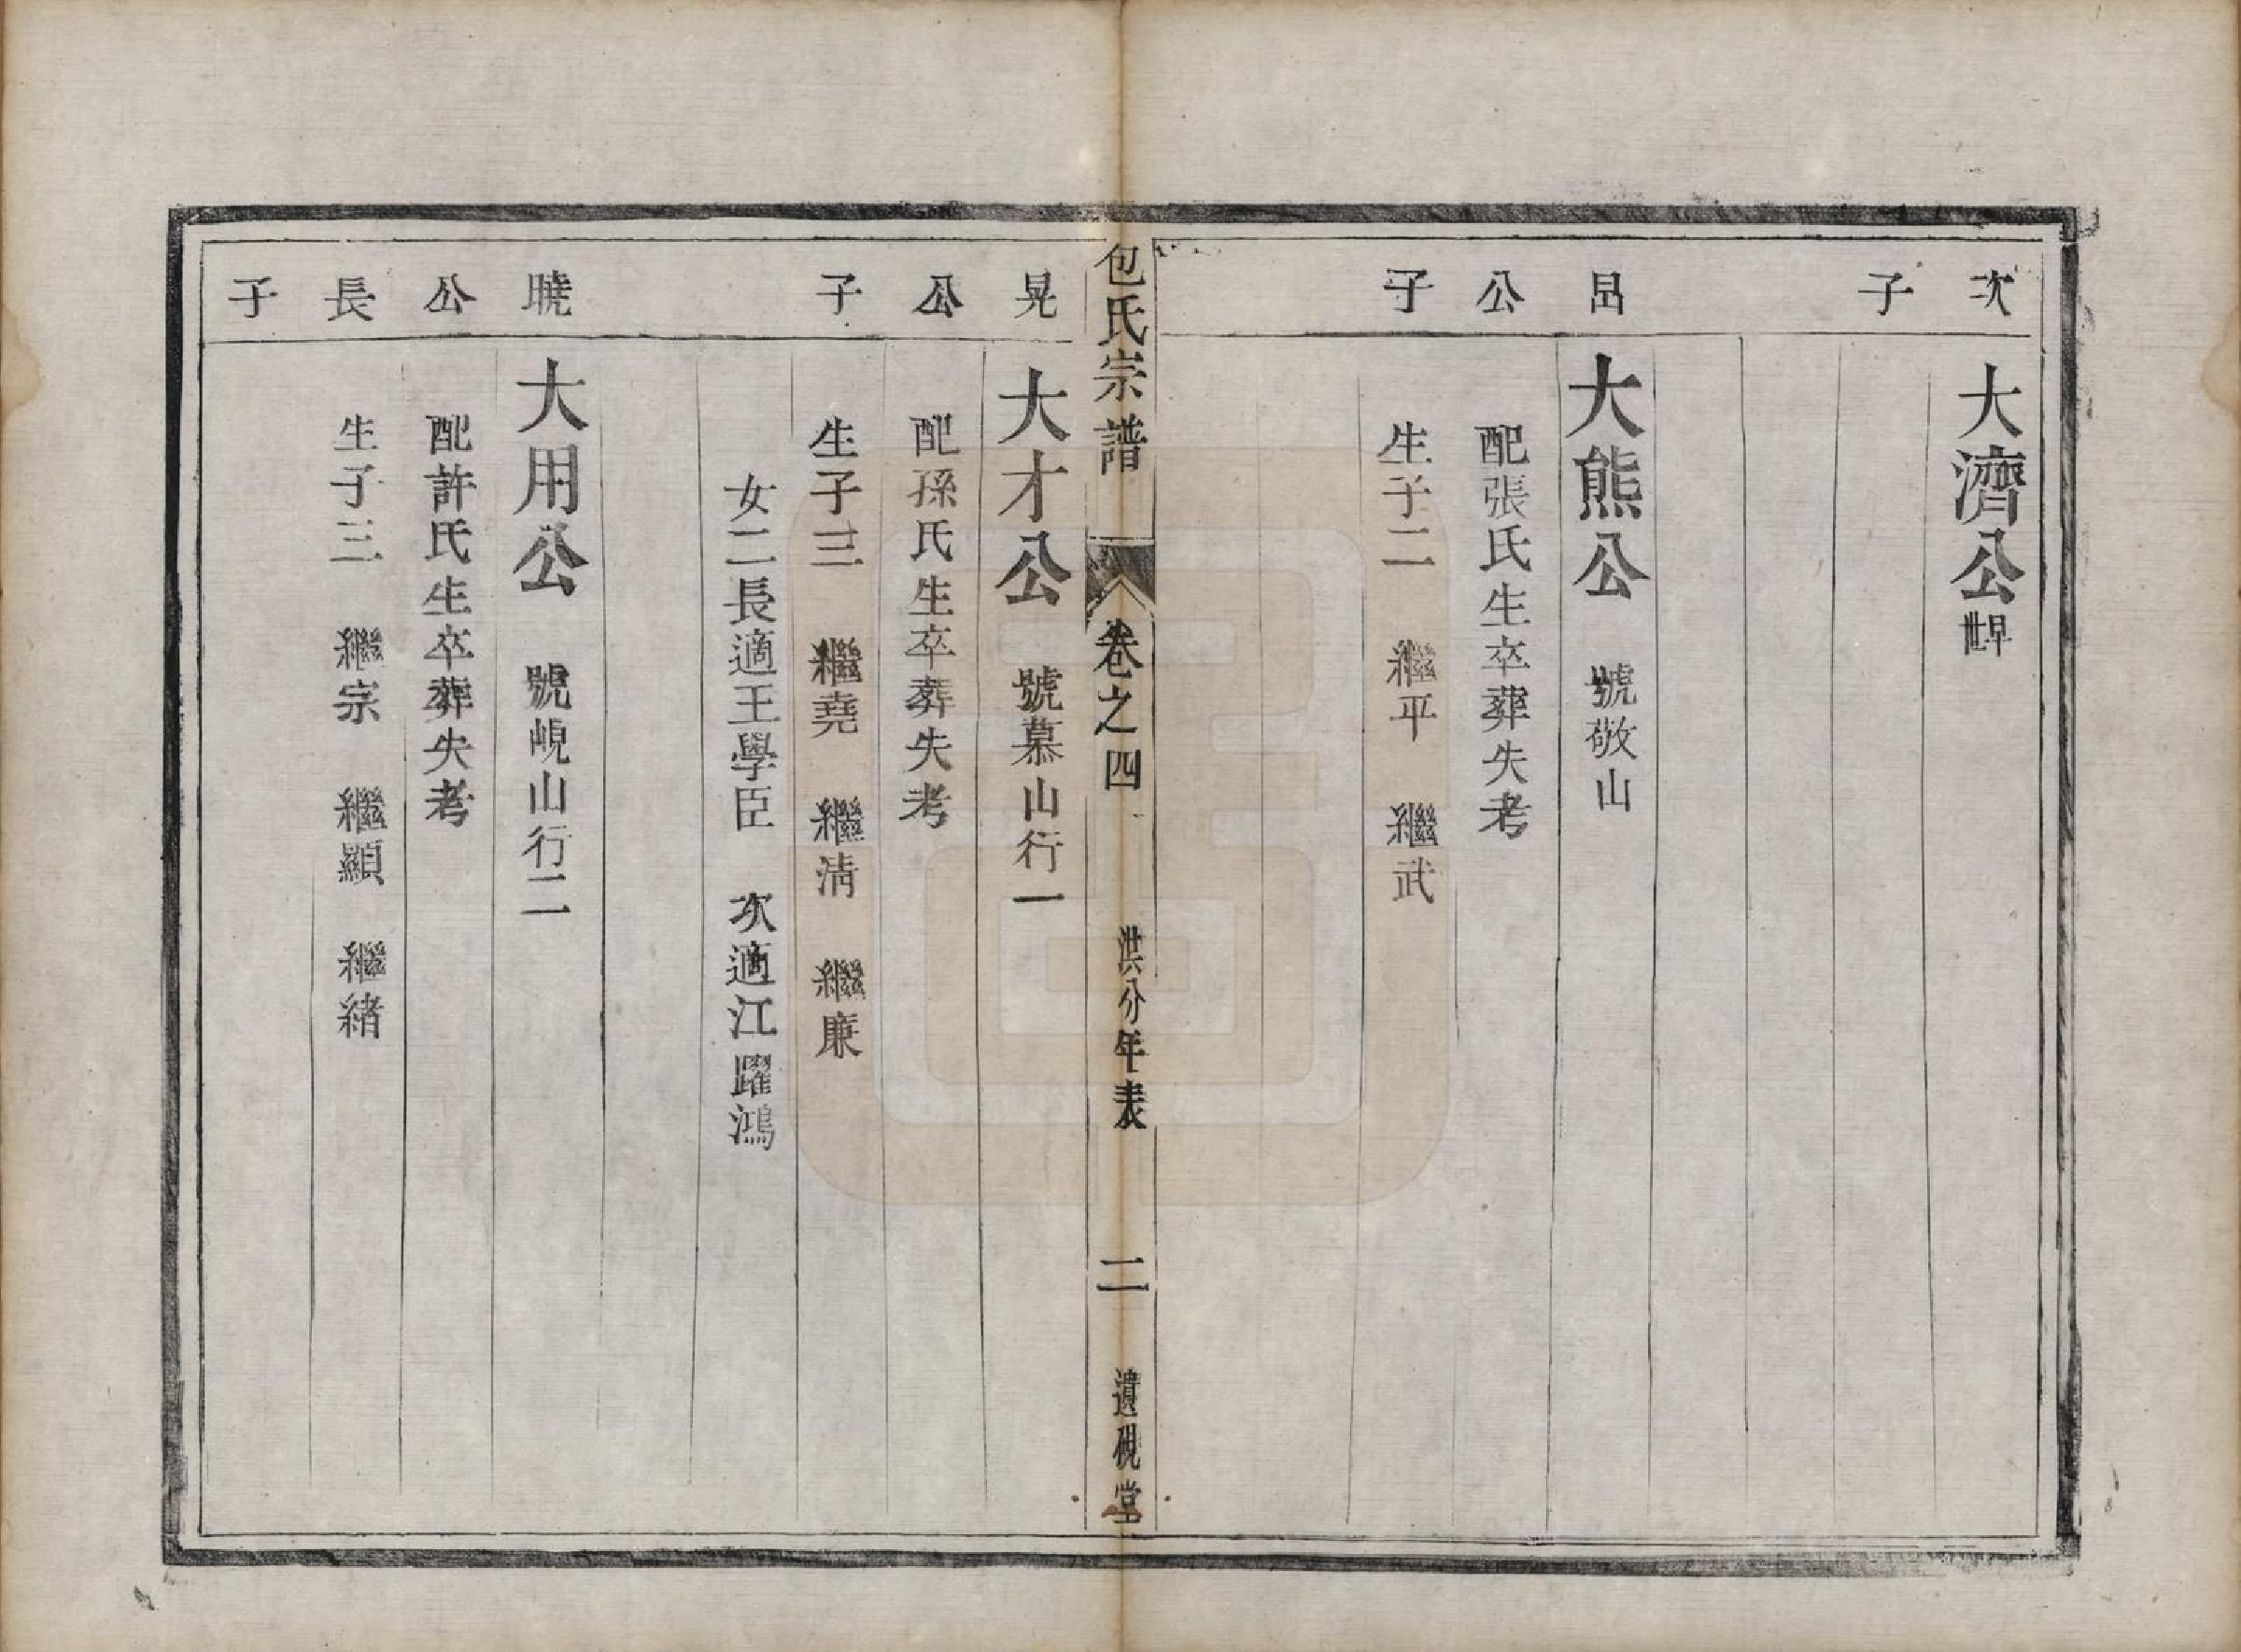 次子
大濟公 早世
昌公子
大熊公 號敬山
配張氏生卒葬失考
生子二 繼平 繼武
包氏宗譜 卷之四 洪分年表 二 遺硯堂
晃公子
大才公 號慕山行一
配孫氏生卒葬失考
生子三 繼堯 繼清 繼廉
女二長適王學臣 次適江躍鴻
曉公長子
大用公 號峴山行二
配許氏生卒葬失考
生子三 繼宗 繼顯 繼緒